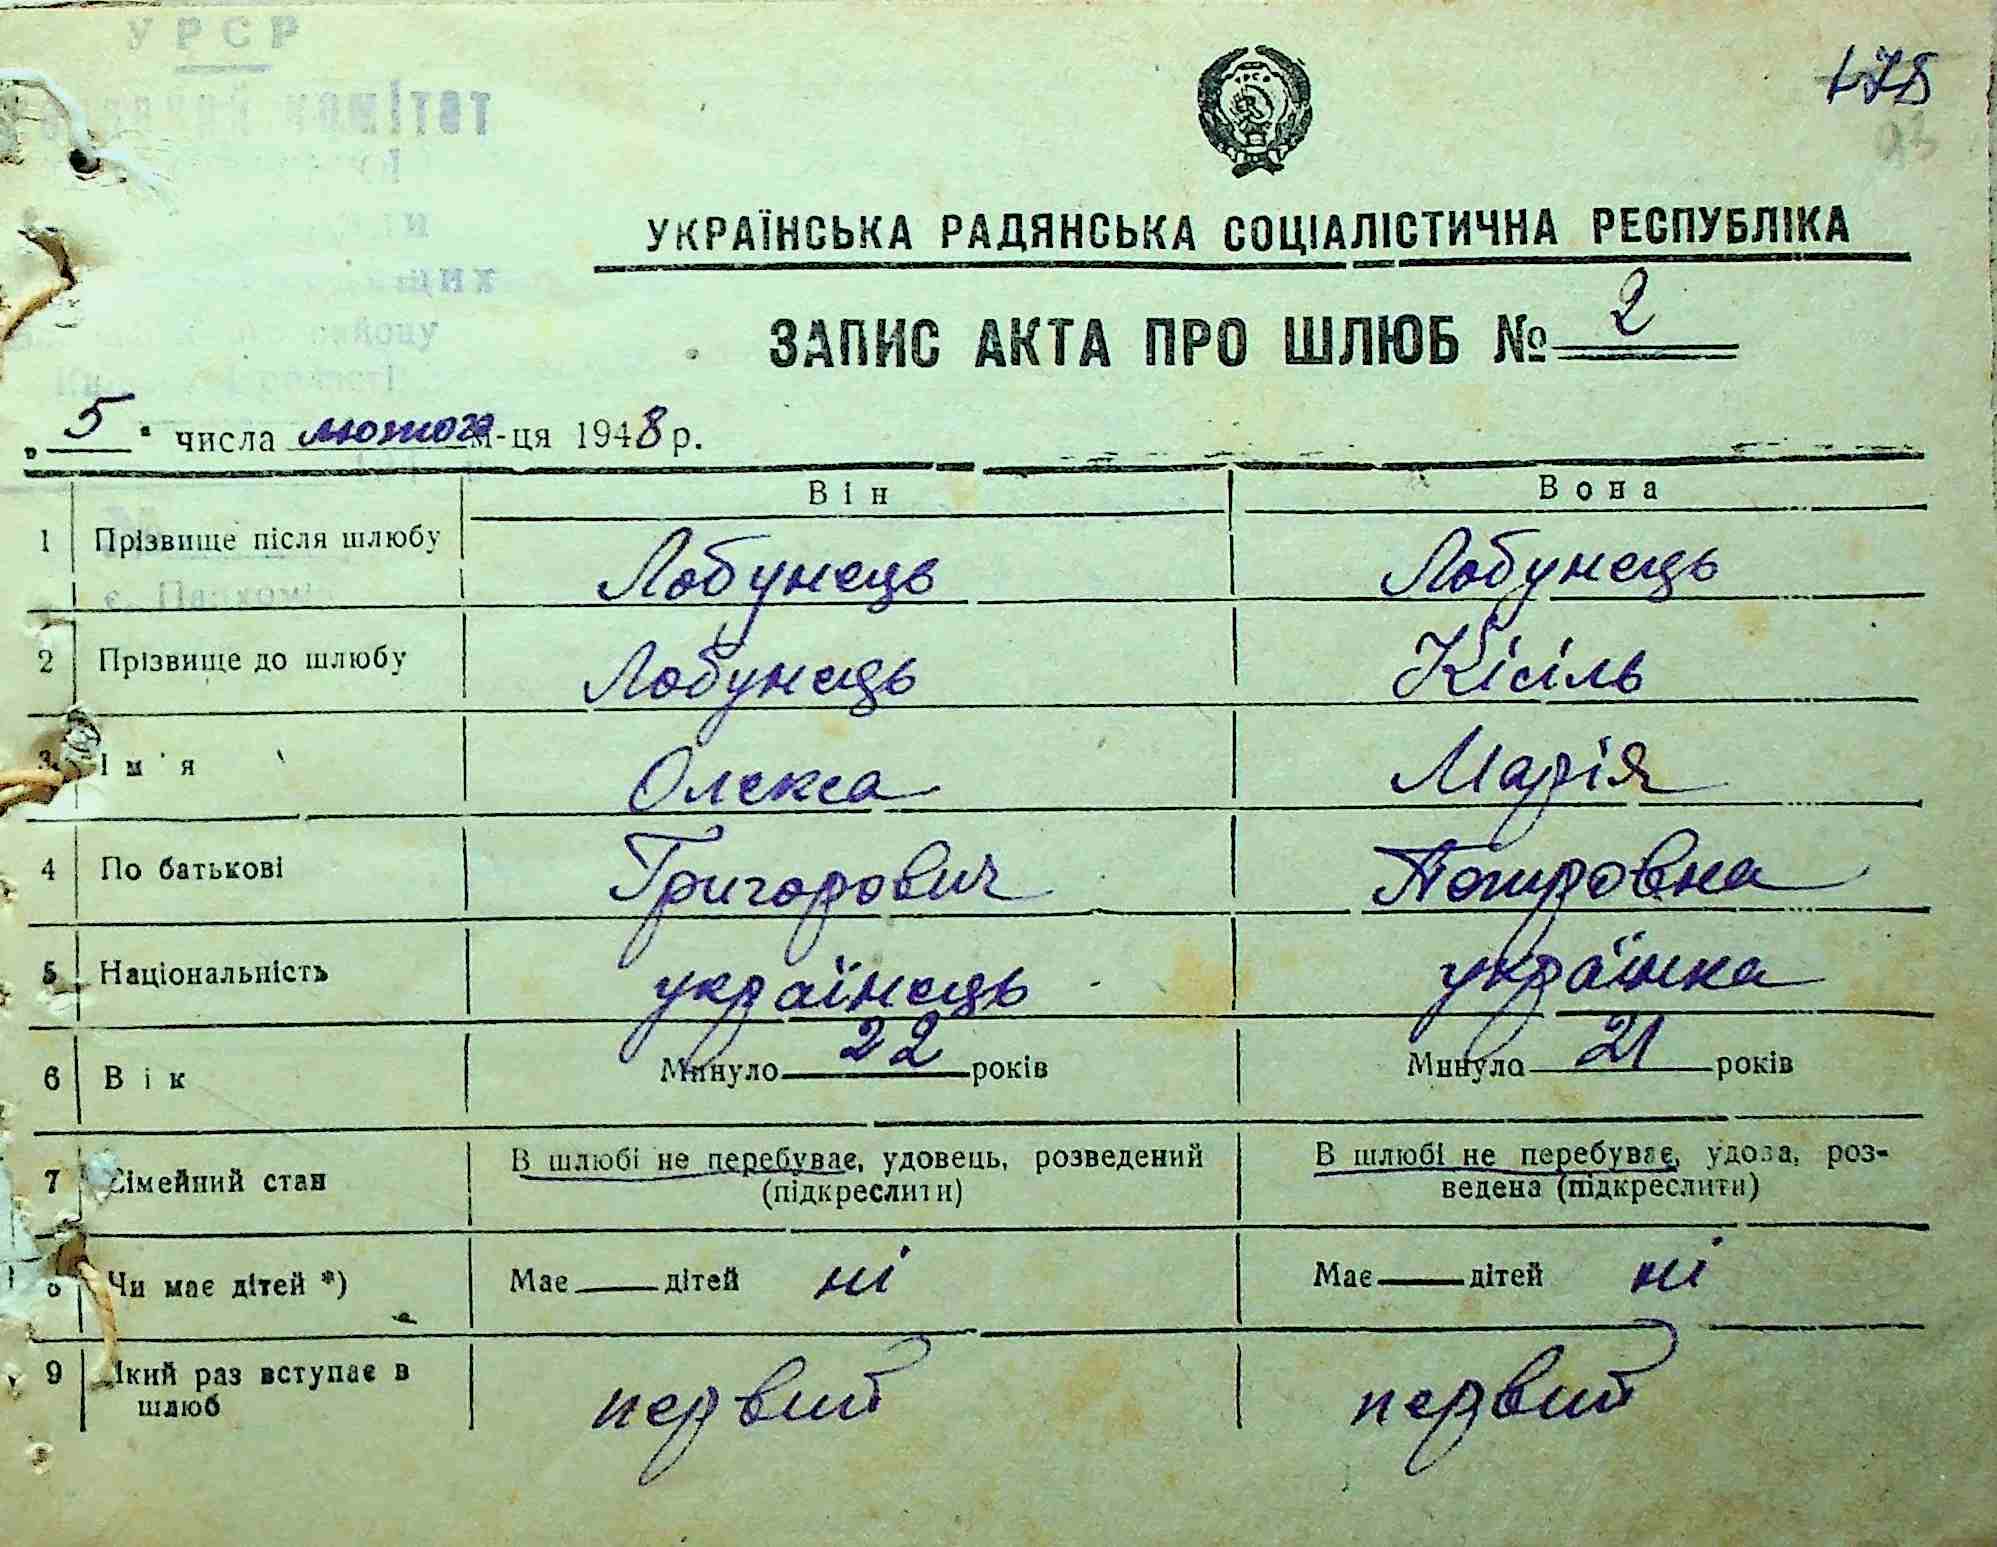 УРСР
комітет
району
області
178
93
УКРАЇНСЬКА РАДЯНСЬКА СОЦІАЛІСТИЧНА РЕСПУБЛІКА
ЗАПИС АКТА ПРО ШЛЮБ № 2
„5“ числа лютого м-ця 1948 р.
Він Вона
1 Прізвище після шлюбу Лобунець Лобунець
2 Прізвище до шлюбу Лобунець Кісіль
3 Ім'я Олекса Марія
4 По батькові Григорович Петровна
5 Національність українець українка
6 Вік Минуло 22 років Минуло 21 років
7 Сімейний стан В шлюбі не перебуває, удовець, розведений В шлюбі не перебуває, удова, роз-
(підкреслити) ведена (підкреслити)
8 Чи має дітей *) Має дітей ні Має дітей ні
9 Який раз вступає в первий первий
шлюб